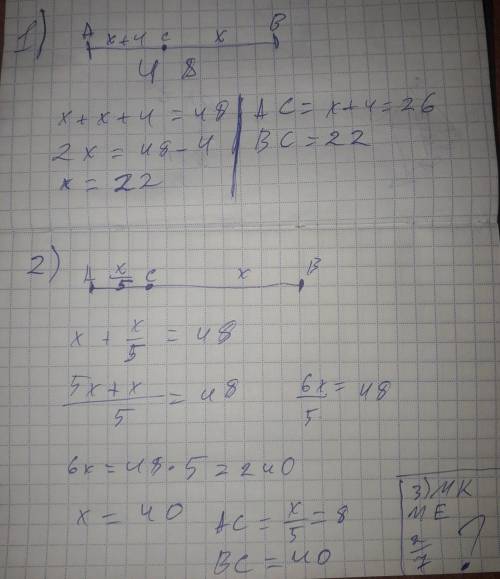 1) A x+4 c x B
48
x + x + 4 = 48 | AC = x+4 = 26
2x = 48 - 4 | BC = 22
x = 22
2) A x/5 c x B
x + x/5 = 48
(5x + x)/5 = 48 6x/5 = 48
6x = 48 · 5 = 240
x = 40 AC = x/5 = 8
BC = 40
3) MK
ME
2/7 ?